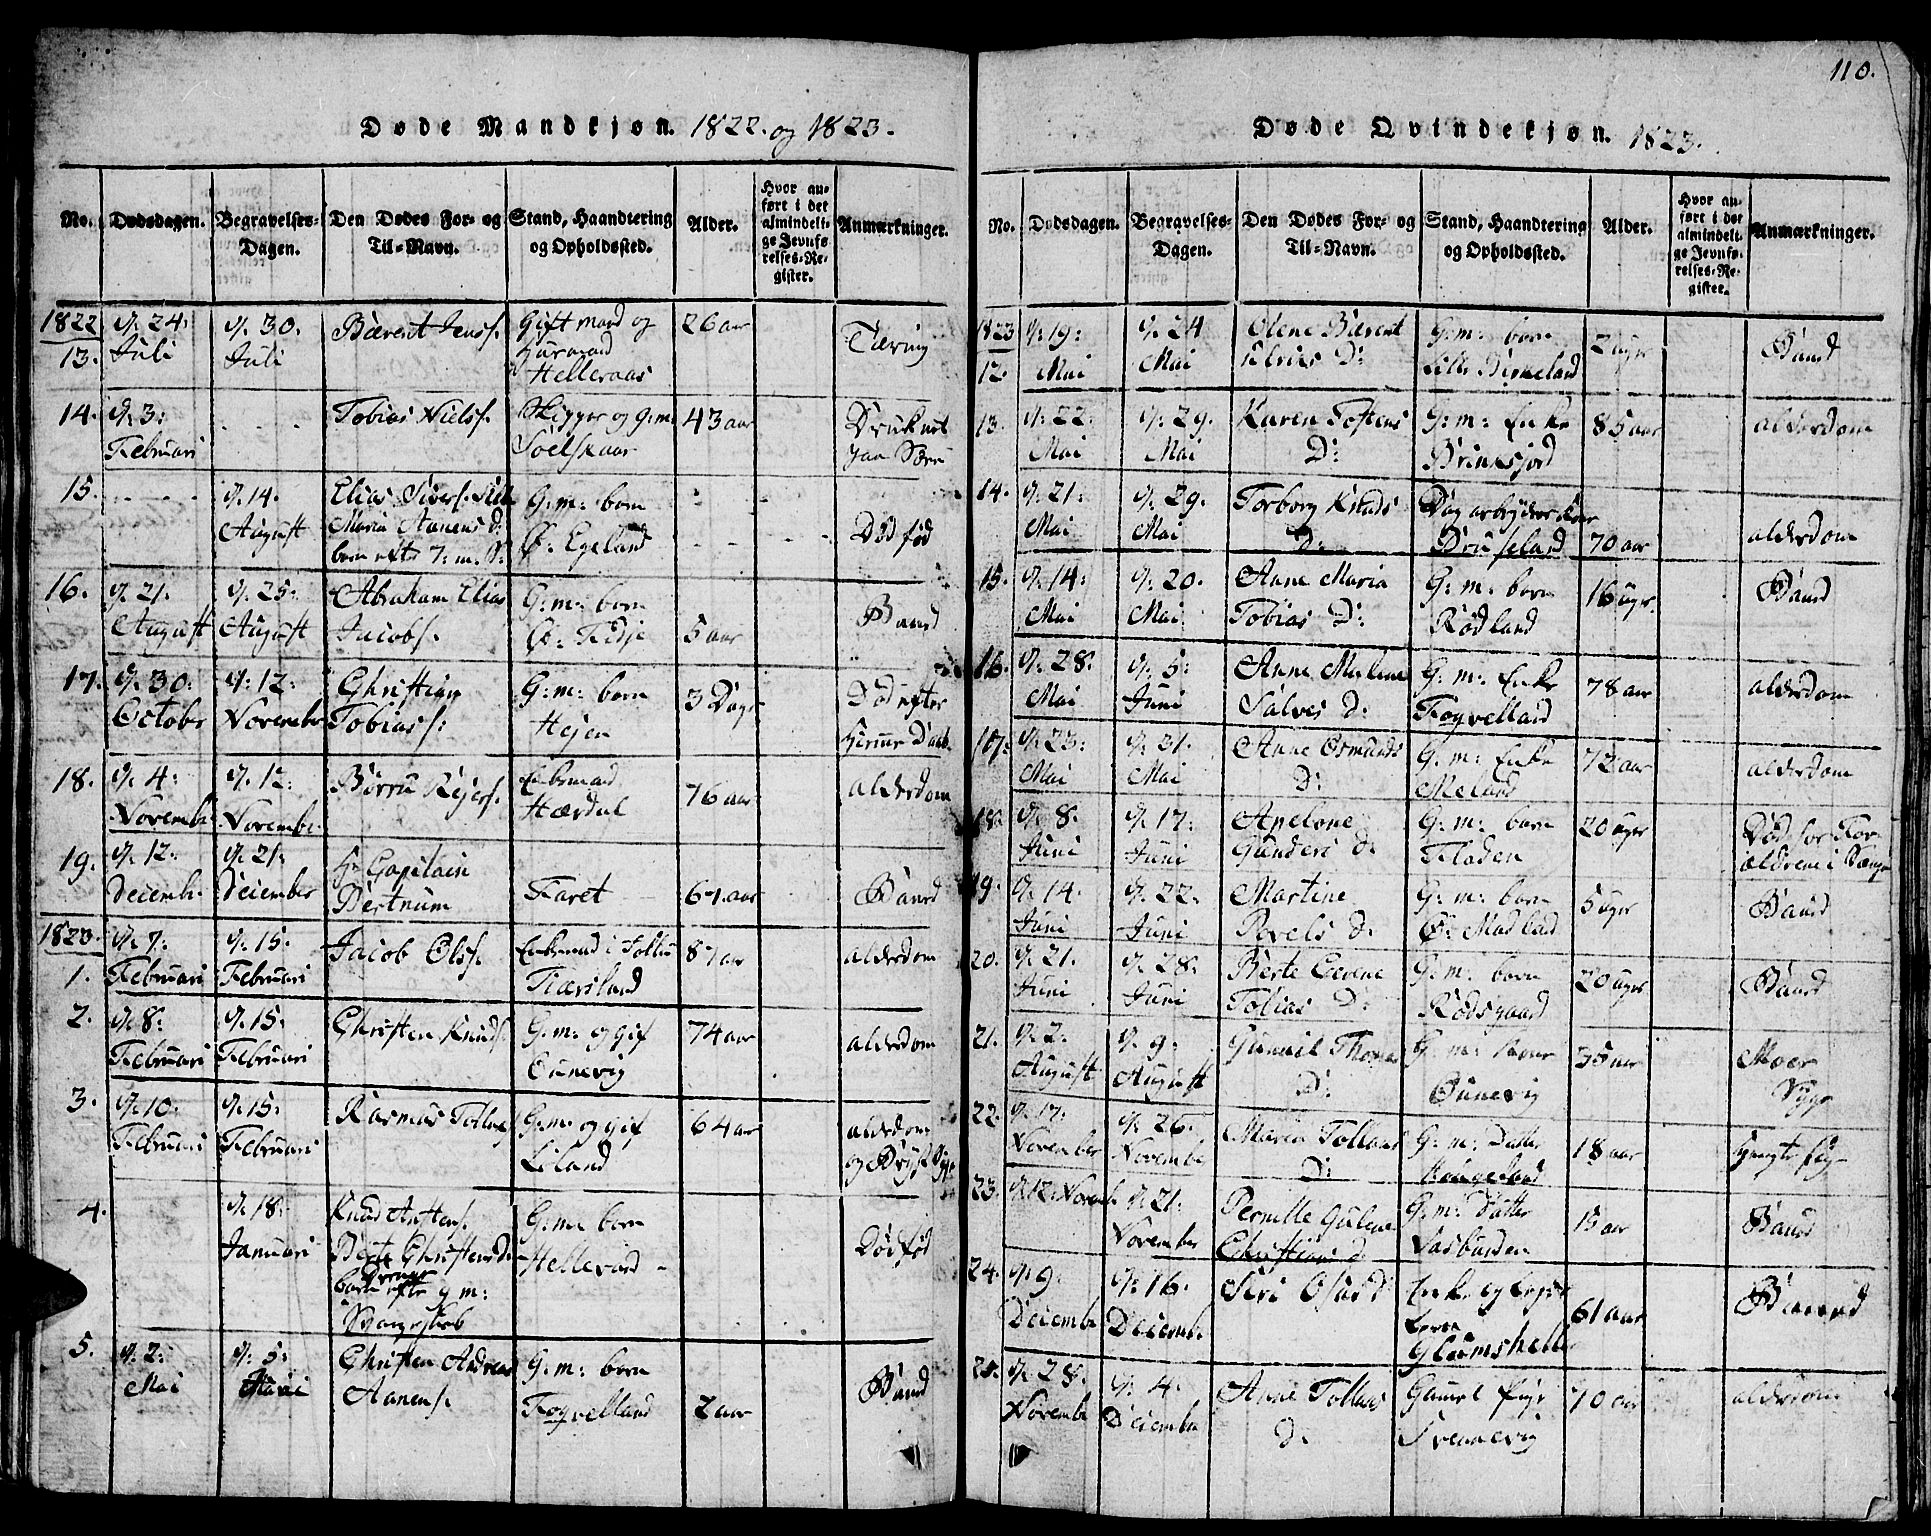 110.
Døde Mandkjøn. 1822. og 1823.
No.
Dødsdagen.
Begravelses-
Dagen.
Den Dødes For- og
Til-Navn.
Stand, Haandtering
og Opholdssted.
Alder.
Hvor an-
ført i det
almindeli-
ge Jevnfø-
relses-Re-
gister.
Anmærkninger.
1822
13.
d. 24:
Juli
d. 30.
Juli
Bærent Jens s.
Gift mand og
Huusmand
Helleraas
26 aar
Tæring
14.
d. 3:
Februari
- - -
Tobias Niels s.
Skipper og G: m:
Soelskaar
43 aar
Druknet
paa Søen
15.
- - -
d. 14.
August
Elias Sivers.
Maria Aanens D:
barn efter 7: m: S:
G: m: barn
Ø: Egeland
- - -
Dødfød
16.
d. 21.
August
d. 25:
August
Abraham Elias
Jacobs.
G: m: barn
Ø: Fedje
5 aar
Baard
17.
d. 30:
Octobr
d. 12:
November
Christian
Tobias s:
G: m: barn
Hejen
3 Dage
Død efter
hjemme Daab
18.
d. 4:
Novembr
d. 12:
November
Børru Rejers.
Enkemand
Hærdal
76 aar
alderdom
19.
d. 12:
Decembr
d. 21:
December
Hr Capitain
Bertnum
Faret
67. aar
Baard
1823.
1.
d. 7:
Februari
d. 15:
Februari
Jacob Ols s.
Enkemand i Follu
Tiærsland
87 aar
alderdom
2.
d. 8:
Februari
d. 15:
Februari
Christen Knuds.
G: m: og gif
Eunevig
74 aar
alderdom
3.
d. 10.
Februari
d. 15:
Februari
Rasmus Tollags
G: m: og gif
Liland
64 aar
alderdom
og Bryst Syge
4.
d. 18:
Januari
Knud Austens.
Berte Christens D:
Drenge
barn efter 9 m:
Svangerskab
G: m: barn
Hellevard -
Dødfød
5.
d. 2:
Mai
d. 5:
Christen Andreas
Aanens.
G: m: barn
Fogvelland
2 aar
Baard
Døde Qvindekjøn. 1823.
No.
Dødsdagen.
Begravelses-
Dagen.
Den Dødes For- og
Til-Navn.
Stand, Haandtering
og Opholdssted.
Alder.
Hvor an-
ført i det
almindeli-
ge Jevnfø-
relses-Re-
gister.
Anmærkninger.
1823
12.
d. 19:
Mai
d. 24
Mai
Olene Bærent
Ulrics D:
G: m: barn
Lille Birkeland
2 uger
Baard
13.
d. 22:
Mai
d. 29.
Mai
Karen Tostens
D:
G: m: Enke
Brinksjord
85 aar
alderdom
14.
d. 21:
Mai
d. 29.
Mai
Torborg Knuds
D:
Dag arbejder
Druseland
70 aar
alderdom
15.
d. 14:
Mai
d. 20.
Mai
Anne Maria
Tobias D:
G: m: barn
Rødland
16 uger.
Baard
16.
d. 28:
Mai
d. 5:
Juni
Anne Malene
Salves D:
G: m: Enke
Fogvelland
78 aar
alderdom
17:
d. 23:
Mai
d. 31.
Mai
Anne Osmunds
D:
G: m: Enke
Meland
72 aar
alderdom
18.
d. 8:
Juni
d. 17:
Juni
Apelone
Gunders D:
G: m: barn
Floden
20 uger
Død hos For-
ældrene i Senge
19.
d. 14
Juni
d. 22:
Juni
Martine
Povels D:
G: m: barn
Ø: Madland
5 uger
Baard
20.
d. 21.
Juni
d. 28:
Juni
Berte Cerene
Tobias D:
G: m: barn
Rødsgaard
20 uger
Baard
21.
d. 2:
August
d. 9:
August
Gunnil Thomes
D:
G: m: kone
Eunevig
35 aar
Moer
Syge
22.
d. 17:
November
d. 26:
Novembe
Maren Tollaus
D:
G: m: Datter
18 aar
23.
d. 12 Novem
d. 21:
November
Pernille Gulene
Christians D
G: m: Datter
13 aar
Baard
24.
d. 9
Decembe
d. 16.
Decembe
Siri Olas D
Enke og
Glomshelle
61 aar
Baard
25.
d. 28.
Novembe
d. 4.
Decembe
Anne Tollaus
D.
Gamel Pige
Svennevig
70 aar
alderdom